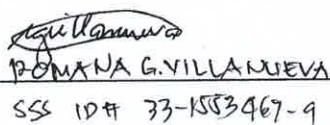 ROMANA G. VILLANUEVA
SSS ID# 33-1553467-9